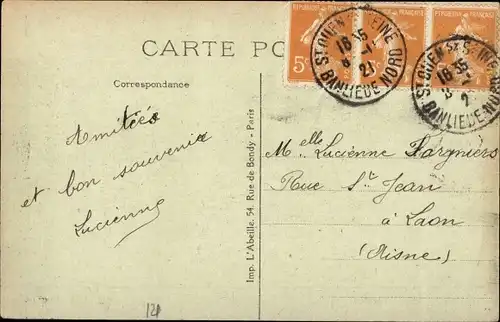 CARTE PO
Correspondance
Amitiés
et bon souvenir
Lucienne
Imp. L'Abeille, 54, Rue de Bondy - Paris
RÉPUBLIQUE FRANÇAISE
5c
ST OUEN S/ SEINE
16 35
8 -1
21
BANLIEUE NORD
ST OUEN S/ SEINE
16 35
8 -1
2
BANLIEUE NORD
Melle Lucienne Fargniers
Rue St Jean
à Laon
(Aisne)
121